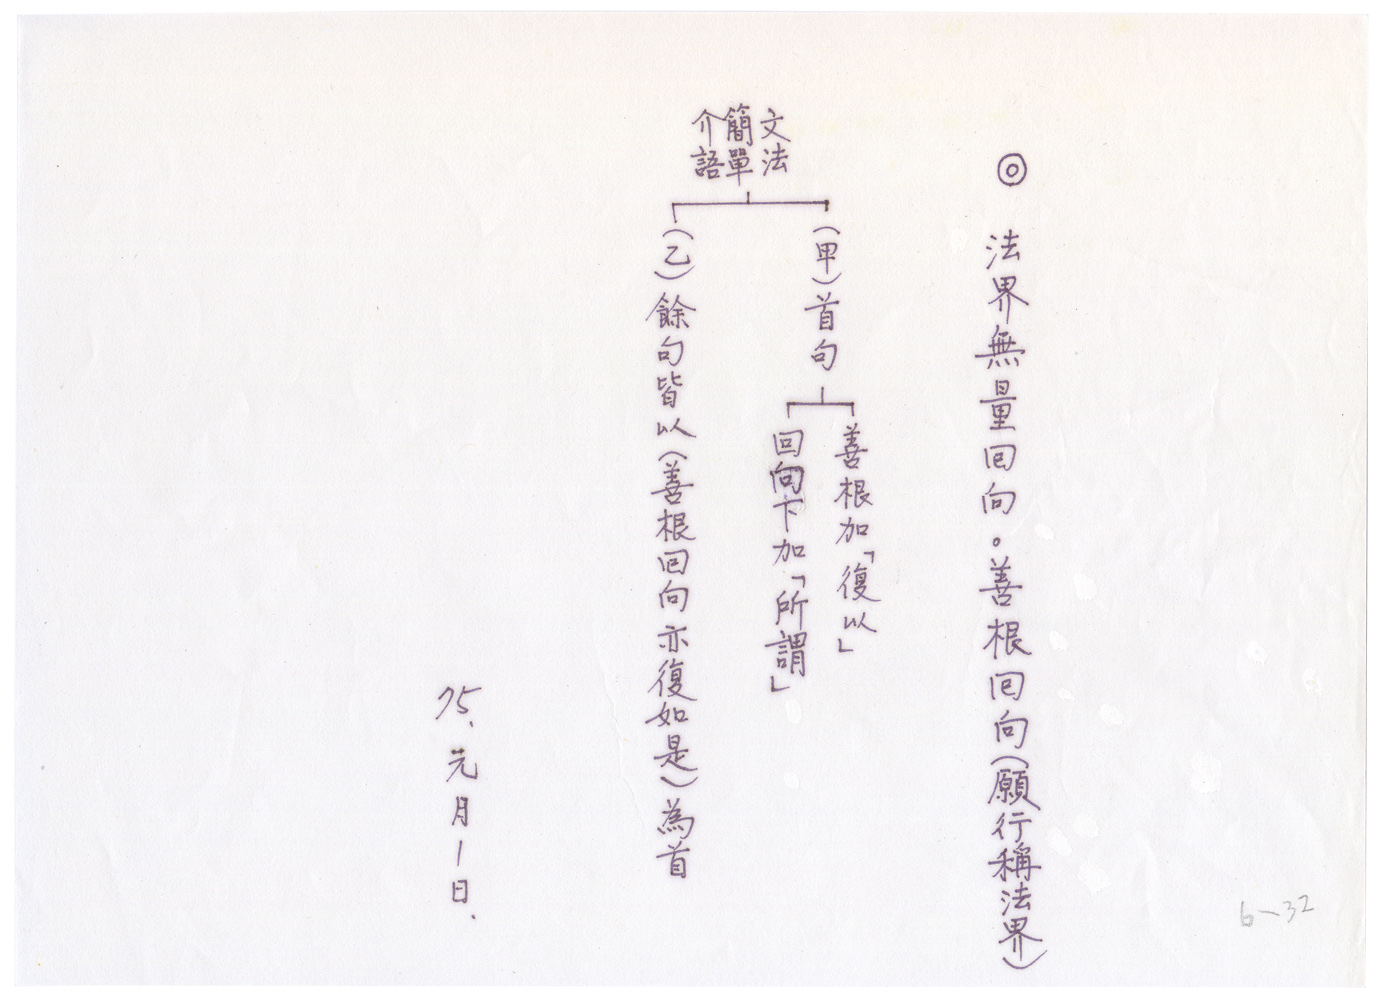 ◎ 法界無量回向。善根回向(願行稱法界)
文法
簡單
介語
(甲)首句
善根加「復以」
回向下加「所謂」
(乙)餘句皆以(善根回向亦復如是)為首
75、元月1日、
6-32